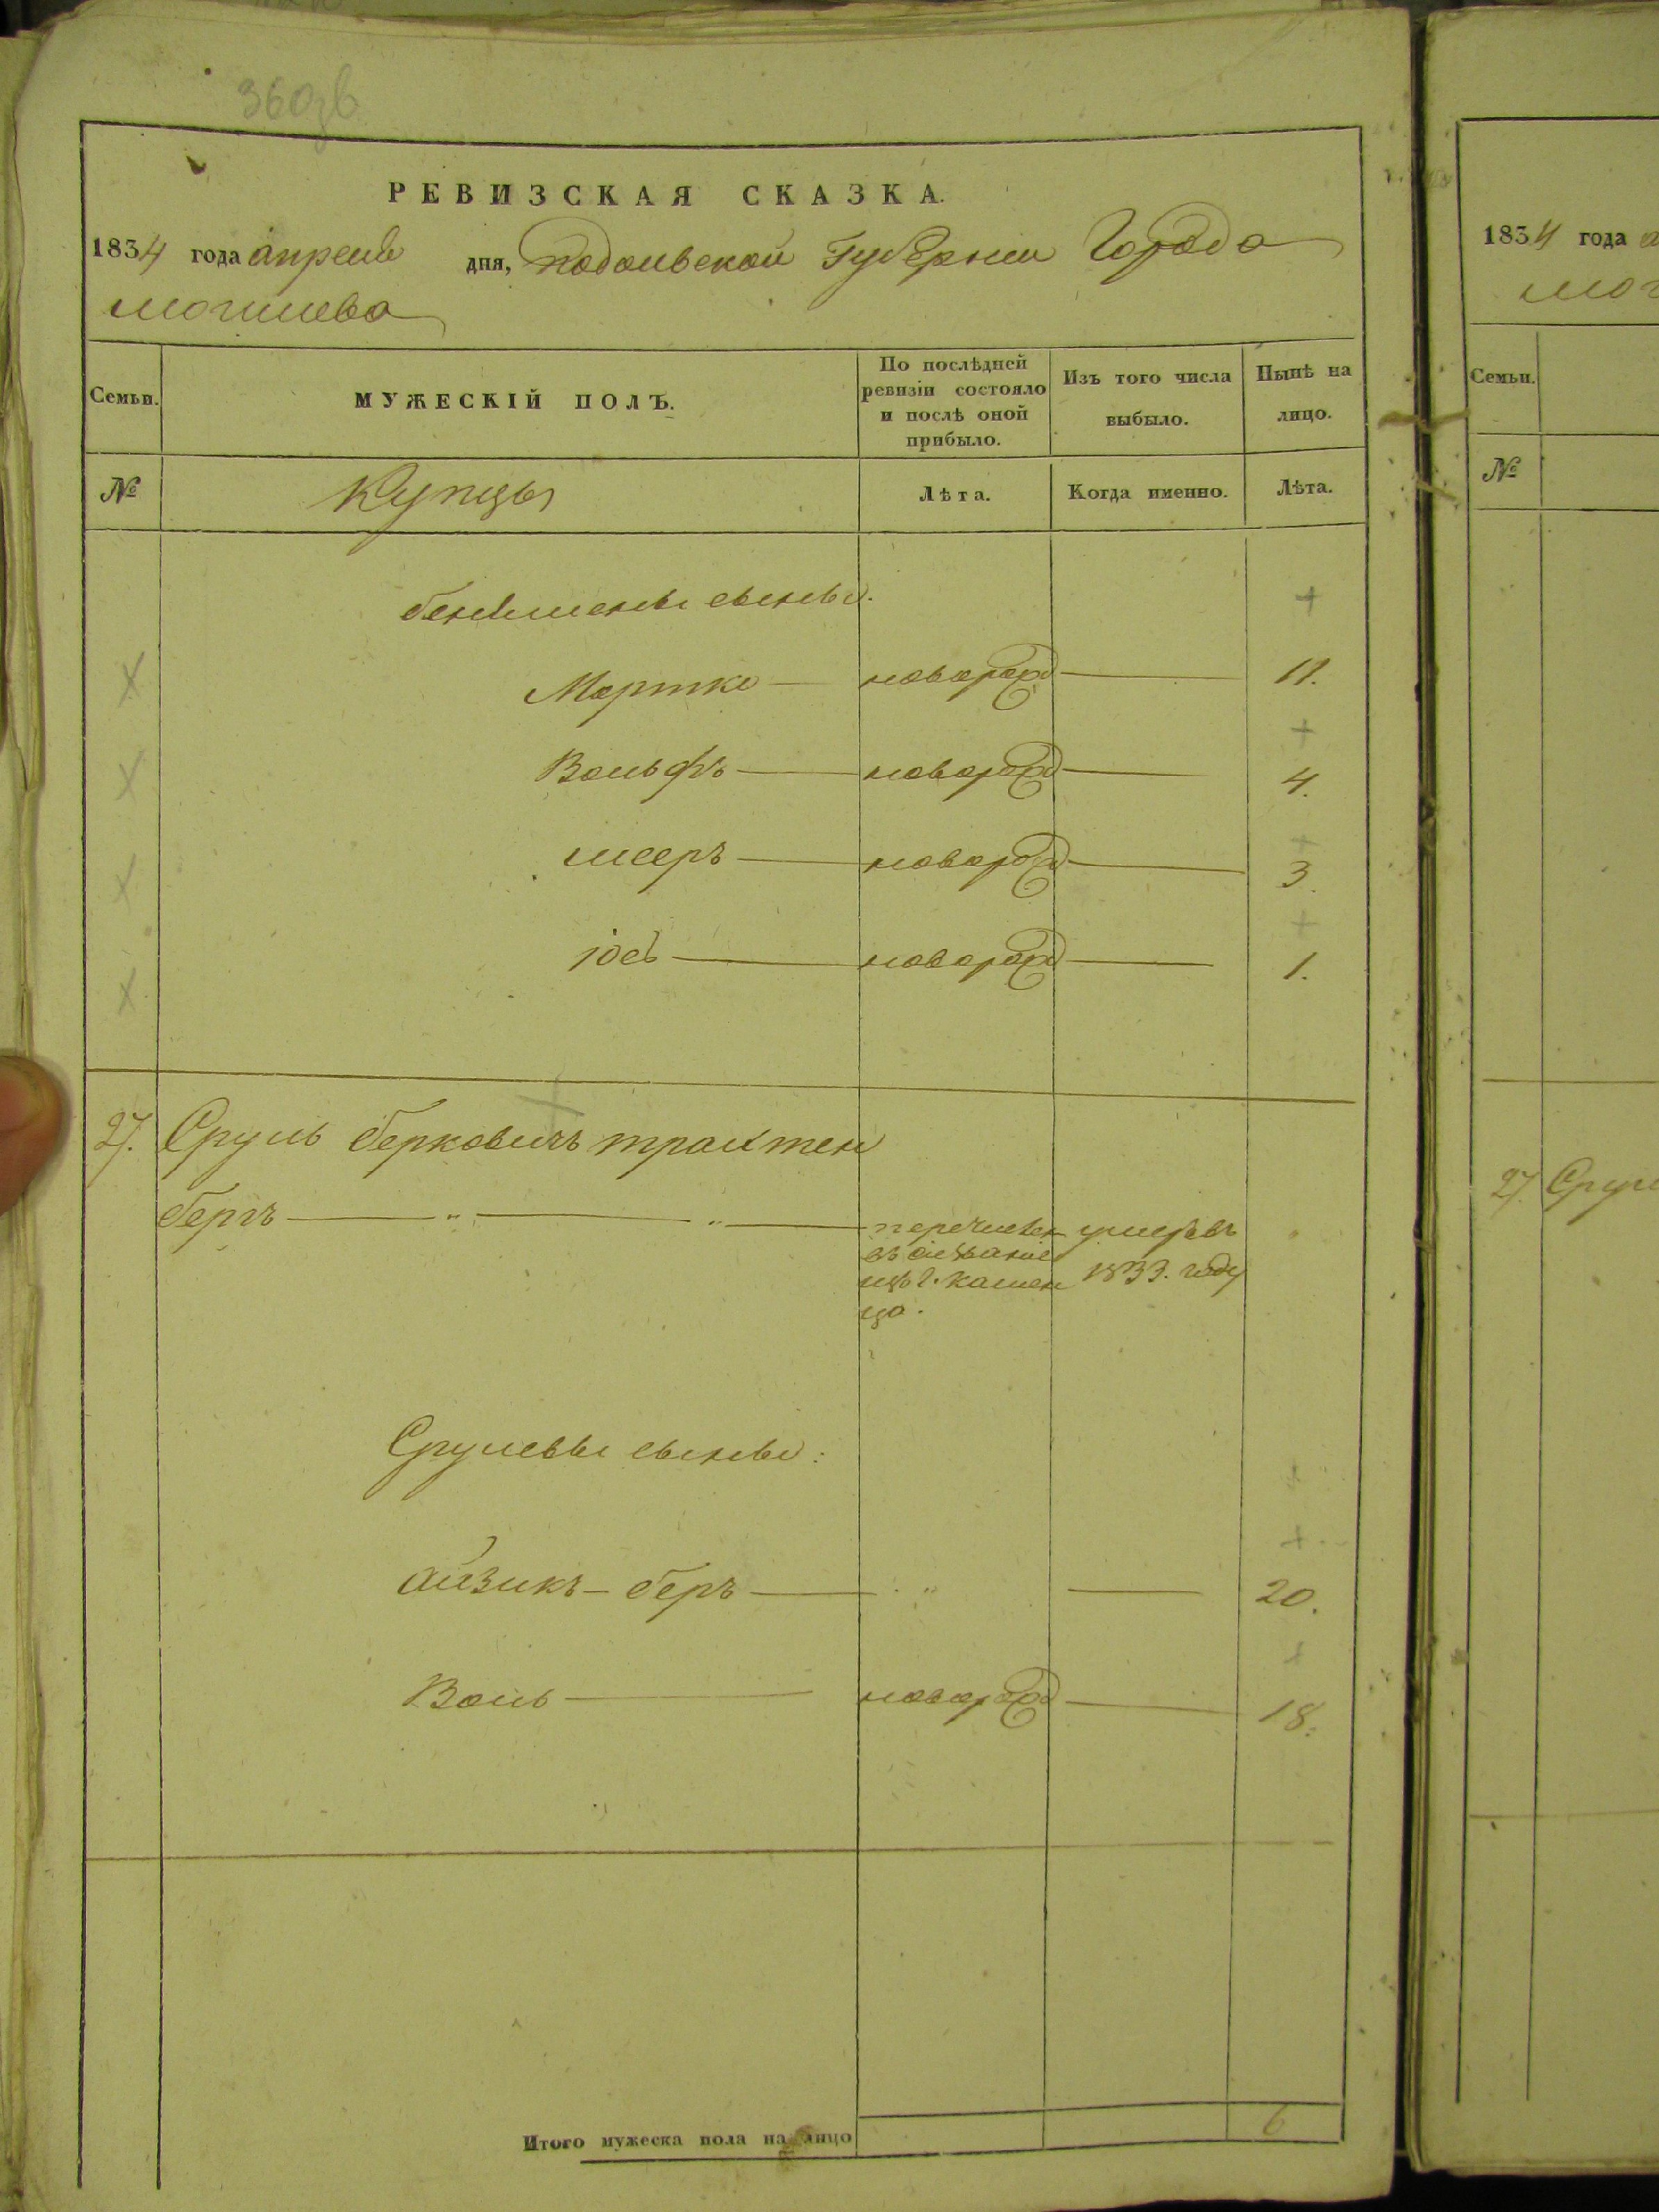 360зв
РЕВИЗСКАЯ СКАЗКА.
1834 года апреля дня, подольской Губернии Города
могилева
Семьи. МУЖЕСКІЙ ПОЛЪ. По послѣдней ревизіи состояло и послѣ оной прибыло. Изъ того числа выбыло. Нынѣ на лицо.
№ Купцы Лѣта. Когда именно. Лѣта.
сыновья.
Мортко новорожд 11.
Вольфъ новорожд 4.
мееръ новорожд 3.
іосъ новорожд 1.
27. Сруль берковичъ трахтен
бергъ перечислен умеръ въ
изъ г. камен 1833. году
ца.
Срулевы сыновья:
айзикъ-беръ 20.
Воль новорожд 18.
Итого мужеска пола на лицо 6
1834 года
мог
Семьи.
№
27. Срул